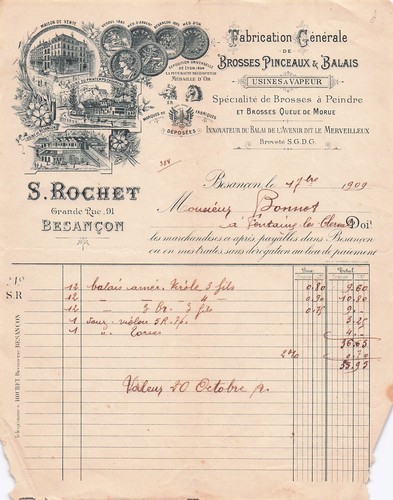 MAISON DE VENTE
EXPOSITION UNIVERSELLE
DE LYON 1894
MÉDAILLE D'OR
MARQUES DE FABRIQUES
DÉPOSÉES
Fabrication Générale
DE
BROSSES PINCEAUX & BALAIS
USINES À VAPEUR
Spécialité de Brosses à Peindre
ET BROSSES QUEUE DE MORUE
INNOVATEUR DU BALAI DE L'AVENIR DIT LE MERVEILLEUX
Breveté S.G.D.G.
S. ROCHET
Grande Rue, 91
BESANÇON
Besançon, 17bre 1909
Monsieur Bonnet
à Fontaine les Clerval Doit
les marchandises ci après payables dans Besançon
ou en mes traites sans dérogation au lieu de paiement
S.R
12 balais 3 fils 0.80 9.60
12 " " 4 " 0.90 10.80
12 " 3 fils 0.75 9 "
1 violon 3.25
1 " 4 "
36.65
2% 0.70
35.95
Valeur 20 Octobre
ROCHET BESANÇON